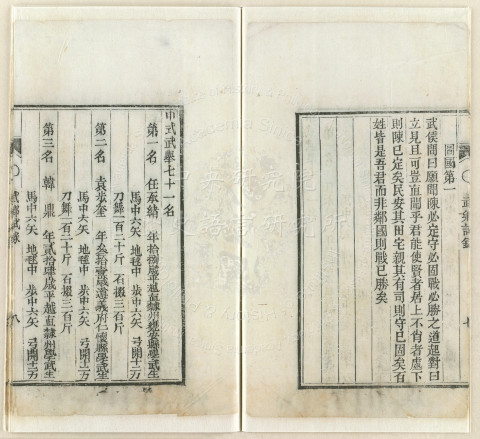 圖國第一
武侯問曰願聞陳必定守必固戰必勝之道起對曰
立見且可豈直聞乎君能使賢者居上不肖者處下
則陳已定矣民安其田宅親其有司則守已固矣百
姓皆是吾君而非鄰國則戰已勝矣
武鄉試錄
七
中式武舉七十一名
第一名 任 年拾 歲平越直隸州甕安縣學武生
馬中六矢 地毬中 步中六矢 弓開十二力
刀舞一百二十斤 石掇三百斤
第二名 袁步奎 年叁拾壹歲遵義府仁懷縣學武生
馬中六矢 地毬中 步中六矢 弓開十二力
刀舞一百二十斤 石掇三百斤
第三名 韓鼎 年貳拾肆歲平越直隸州學武生
馬中六矢 地毬中 步中六矢 弓開十二力
武鄉試錄
八